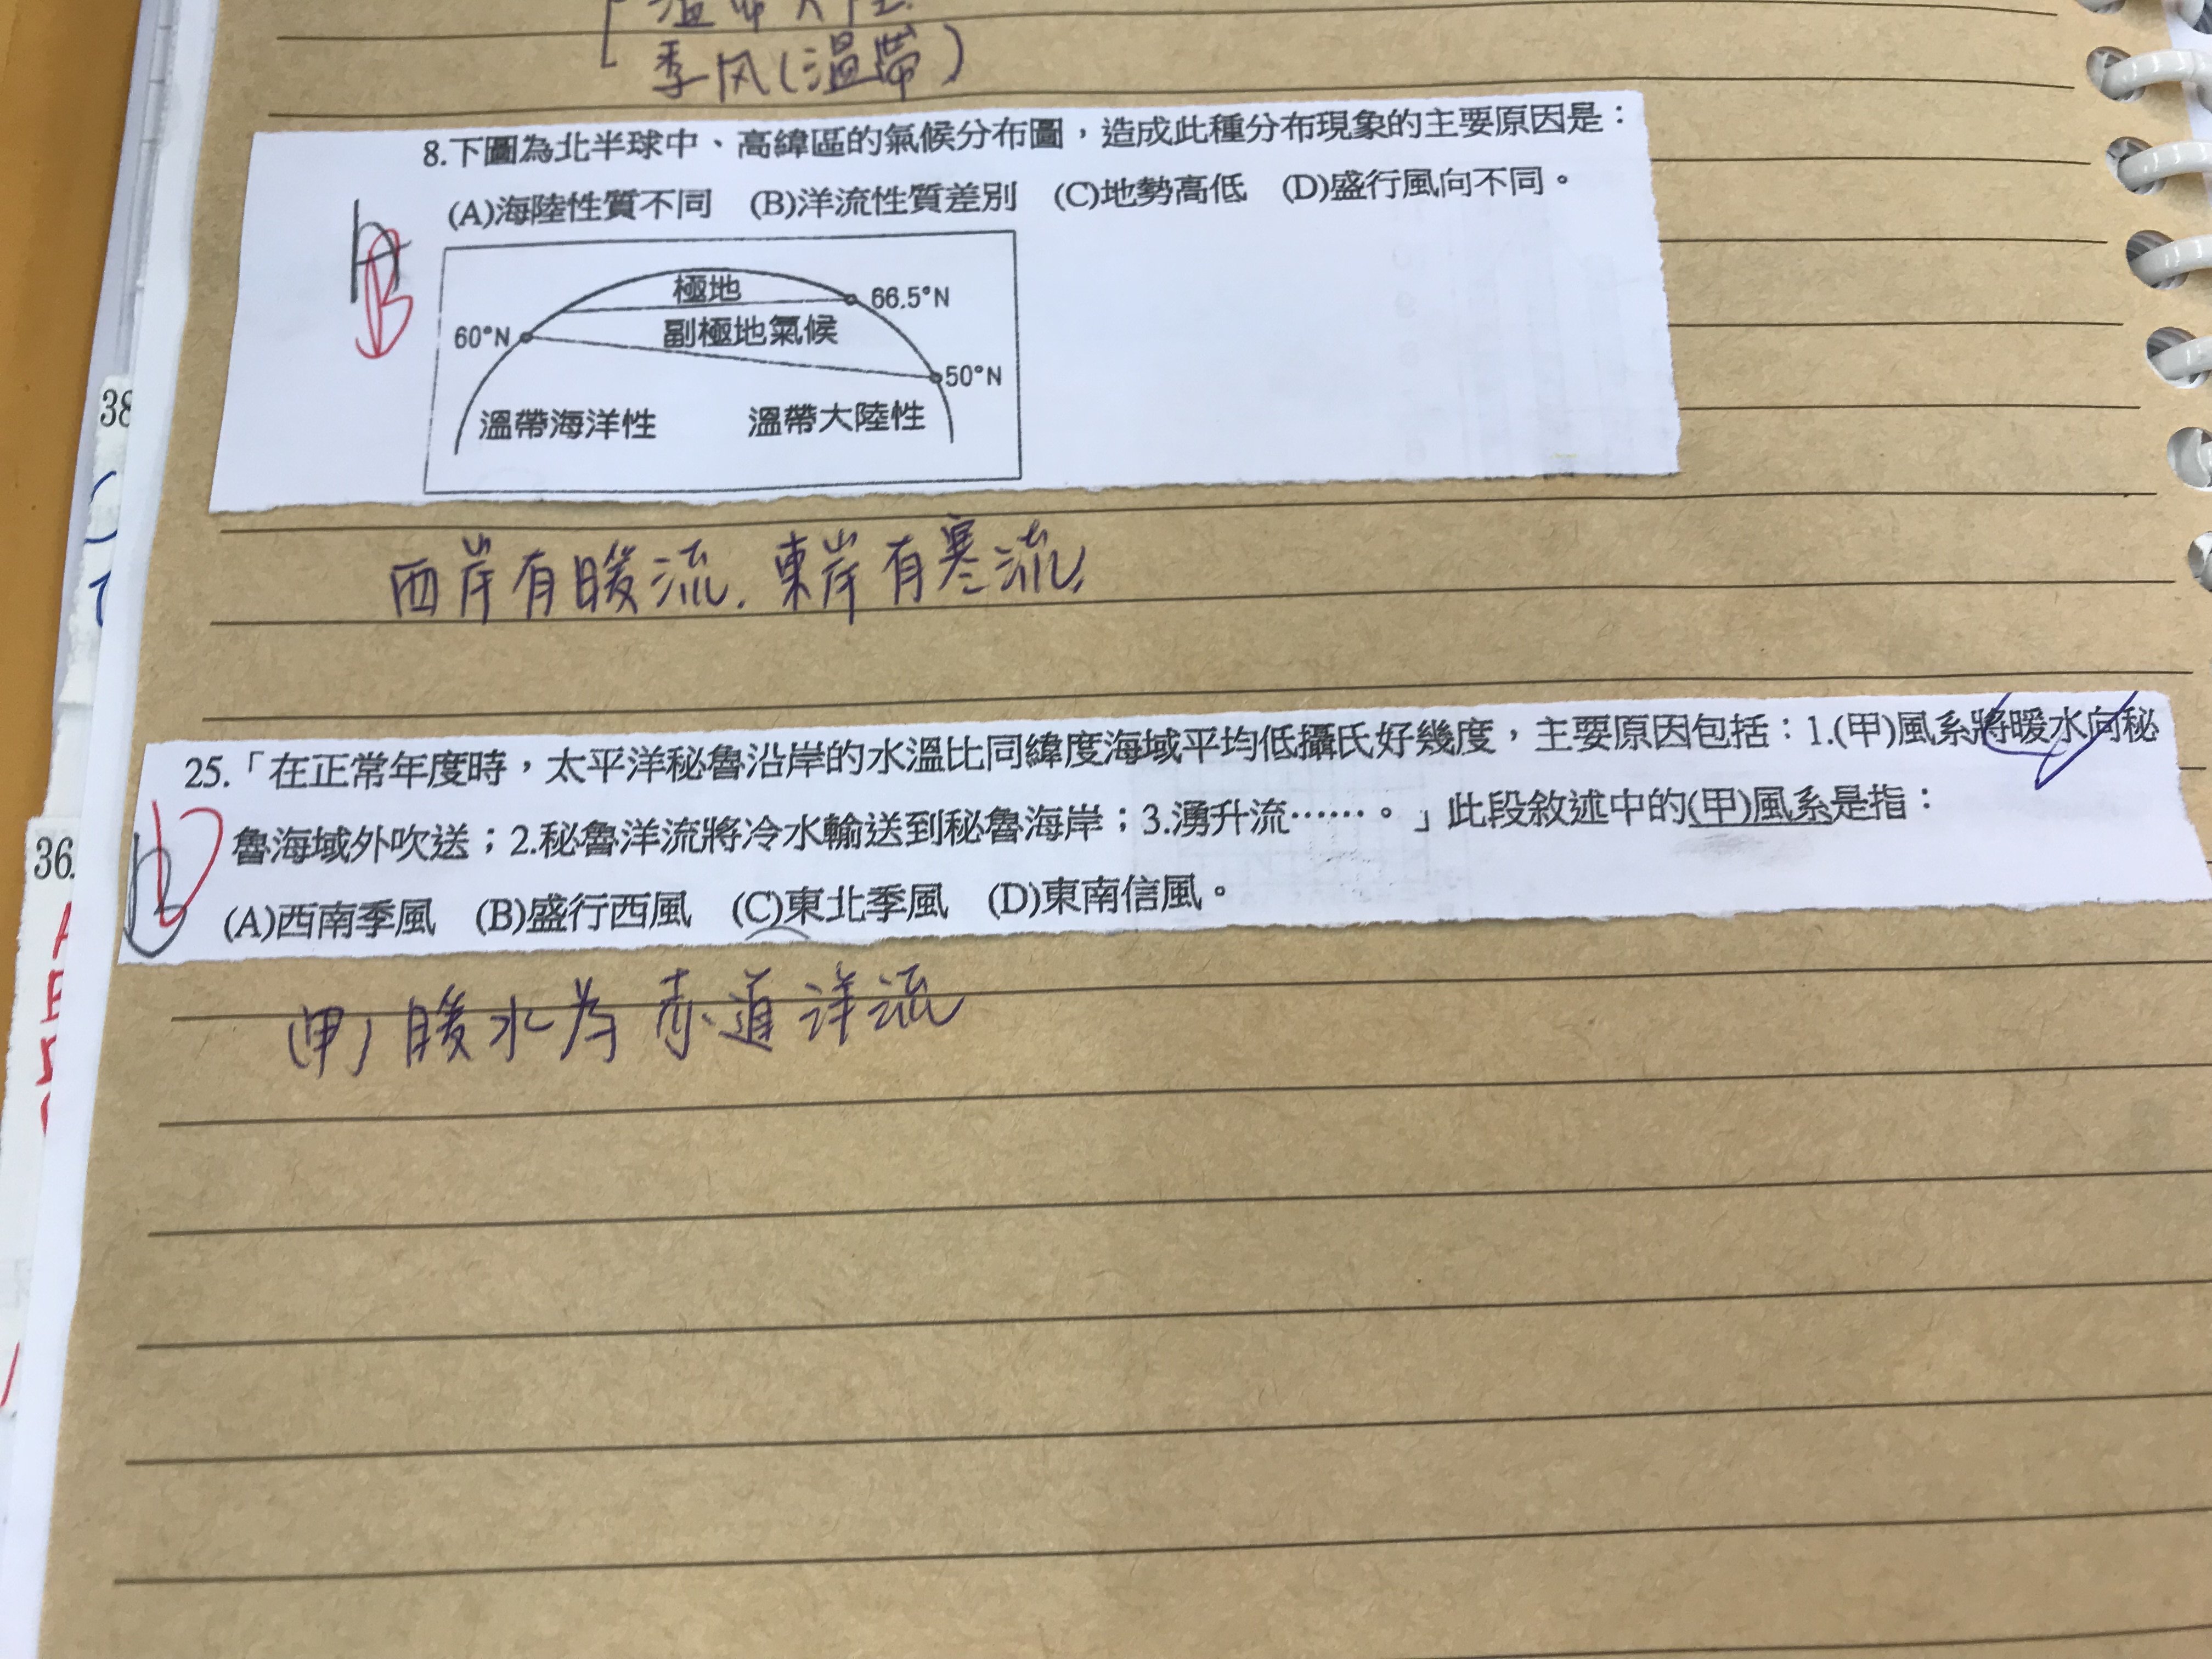 季风(溫帶)
8.下圖為北半球中、高緯區的氣候分布圖，造成此種分布現象的主要原因是：
(A)海陸性質不同 (B)洋流性質差別 (C)地勢高低 (D)盛行風向不同。
A
B
極地
66.5°N
副極地氣候
60°N
50°N
溫帶海洋性 溫帶大陸性
38
西岸有暖流. 東岸有寒流.
25.「在正常年度時，太平洋秘魯沿岸的水溫比同緯度海域平均低攝氏好幾度，主要原因包括：1.(甲)風系將暖水向秘
魯海域外吹送；2.秘魯洋流將冷水輸送到秘魯海岸；3.湧升流……。」此段敘述中的(甲)風系是指：
(A)西南季風 (B)盛行西風 (C)東北季風 (D)東南信風。
36.
(甲) 暖水為赤道洋流